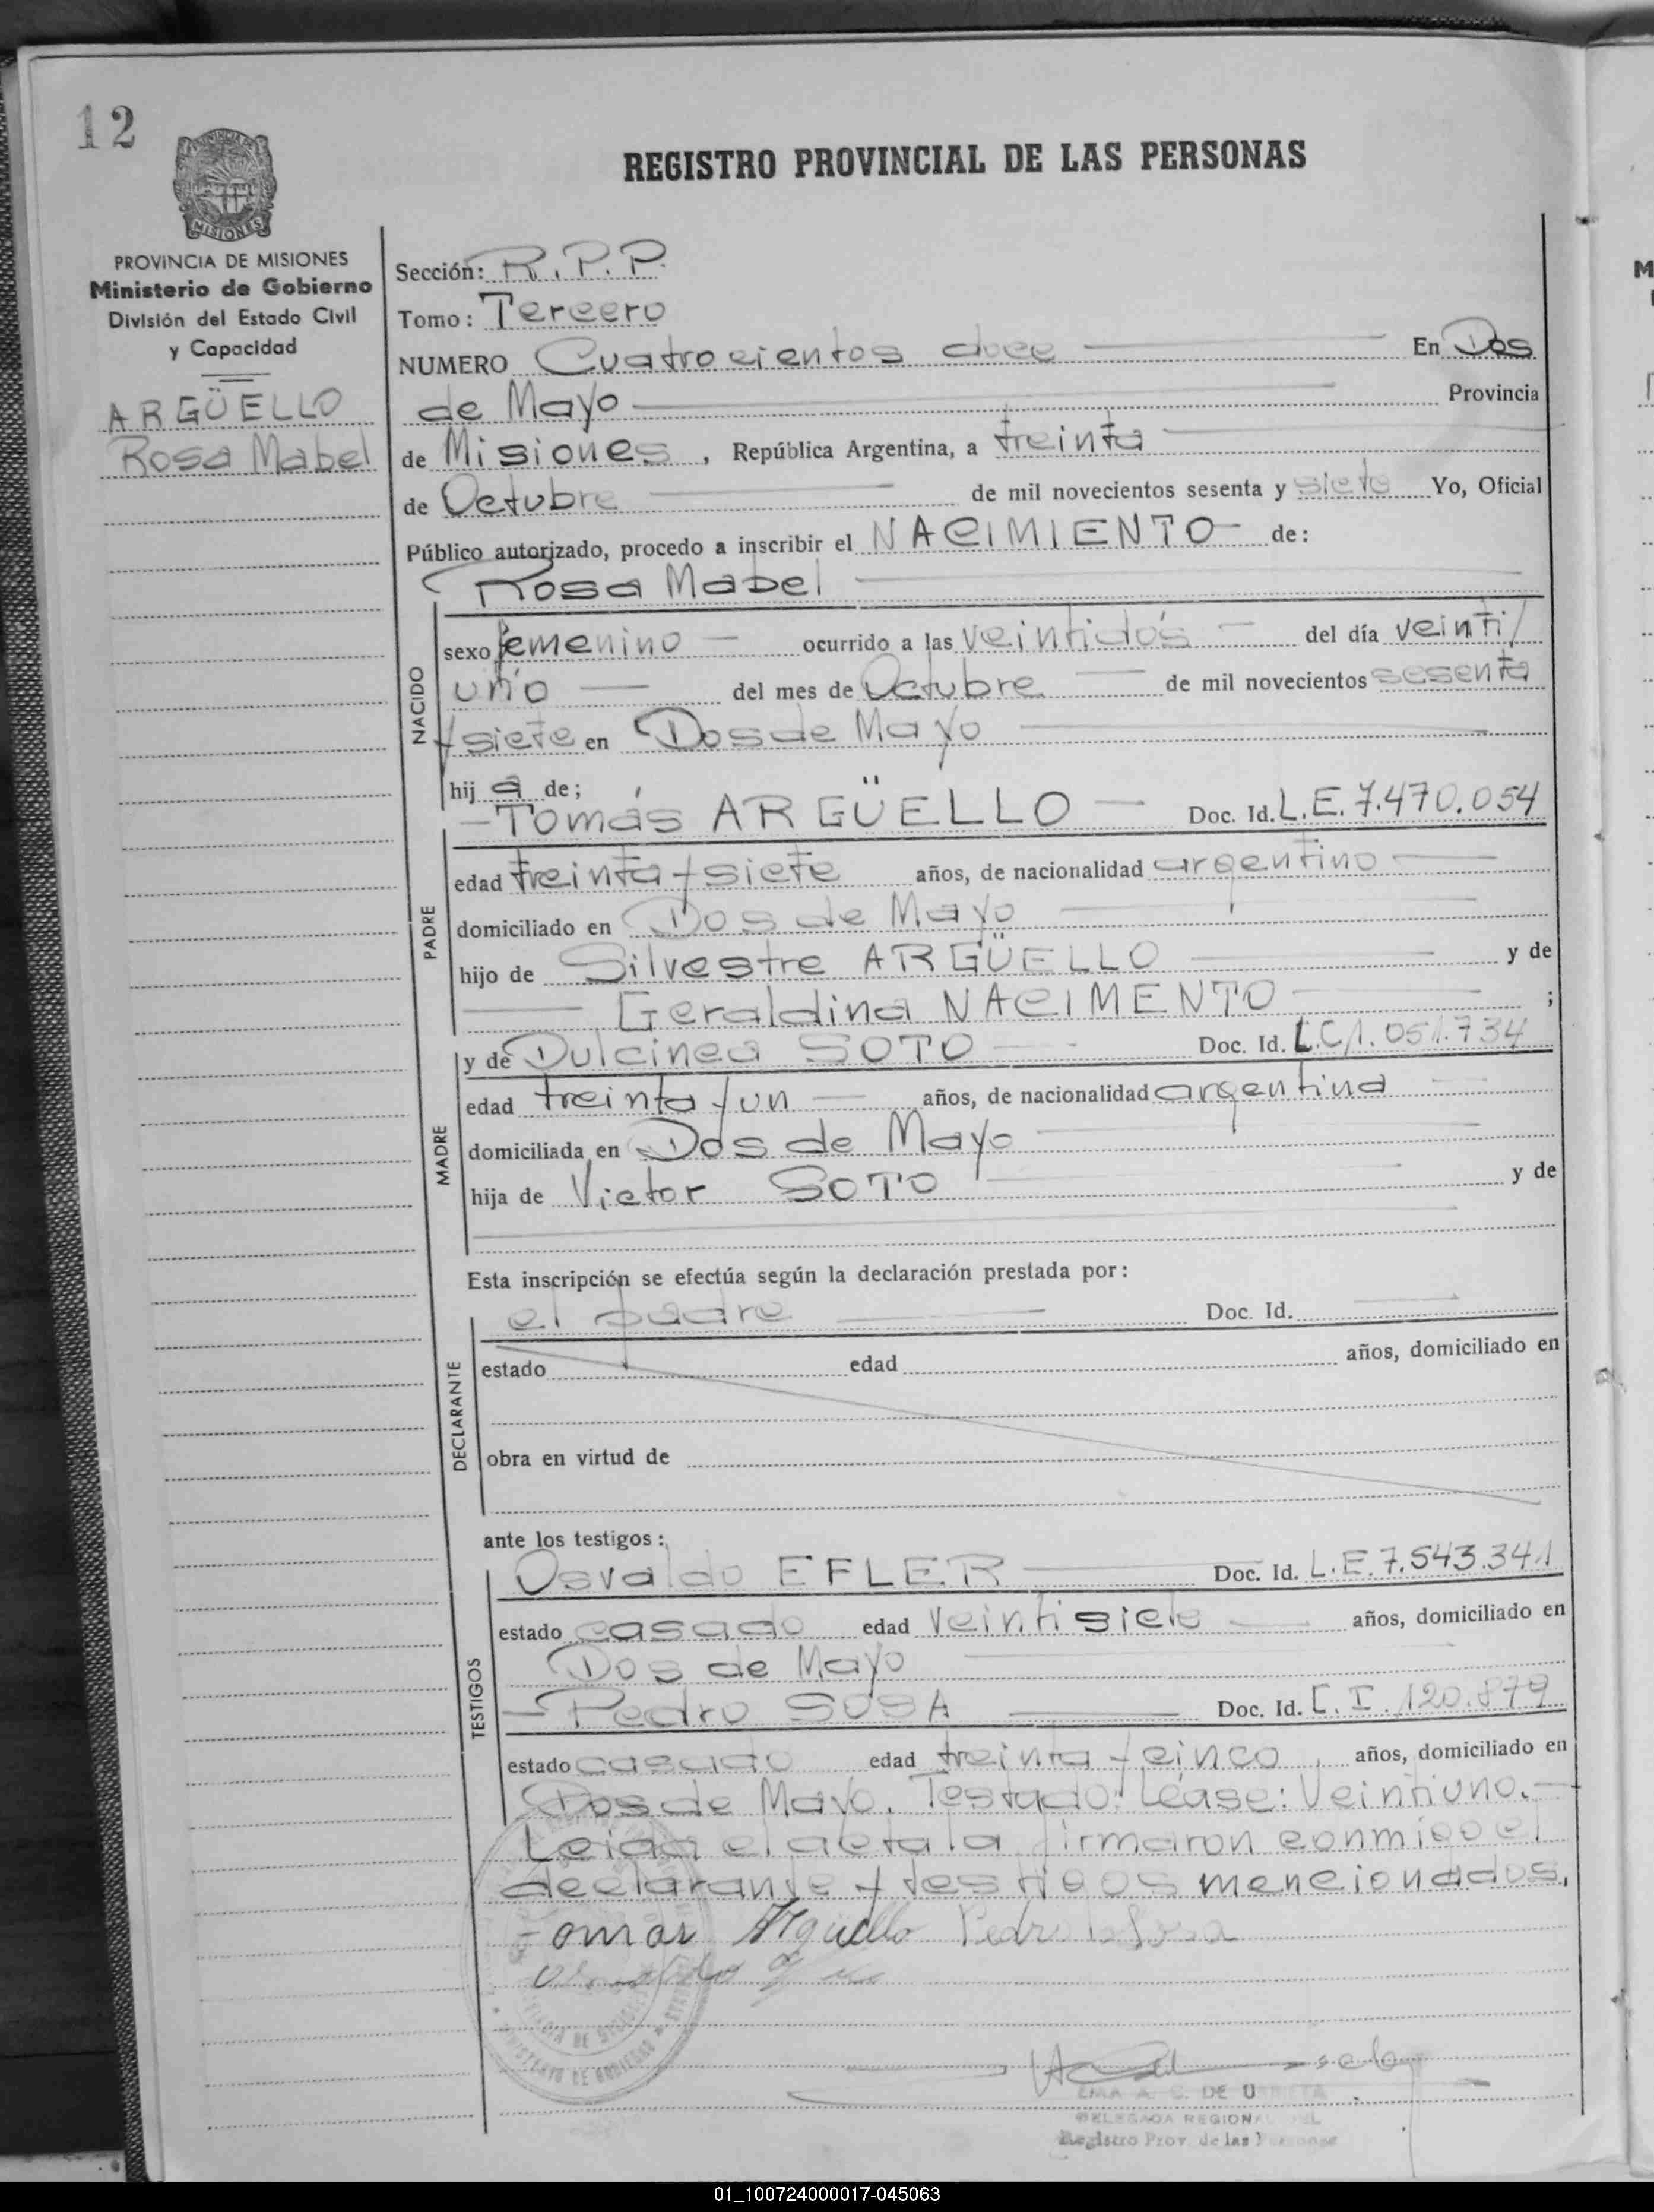 12
MISIONES
REGISTRO PROVINCIAL DE LAS PERSONAS
PROVINCIA DE MISIONES
Ministerio de Gobierno
División del Estado Civil
y Capacidad
ARGÜELLO
Rosa Mabel
Sección: R.P.P.
Tomo: Tercero
NUMERO Cuatrocientos doce En Dos
de Mayo Provincia
de Misiones, República Argentina, a treinta
de Octubre de mil novecientos sesenta y siete Yo, Oficial
Público autorizado, procedo a inscribir el NACIMIENTO de:
Rosa Mabel
NACIDO
sexo femenino ocurrido a las veintidós del día veinti/
uno del mes de Octubre de mil novecientos sesenta
y siete en Dos de Mayo
hij a de;
Tomás ARGÜELLO Doc. Id. L.E. 7.470.054
PADRE
edad treinta y siete años, de nacionalidad argentino
domiciliado en Dos de Mayo
hijo de Silvestre ARGÜELLO y de
Geraldina NACIMENTO ;
MADRE
y de Dulcinea SOTO Doc. Id. L.C. 1.051.734
edad treinta y un años, de nacionalidad argentina
domiciliada en Dos de Mayo
hija de Victor SOTO y de
Esta inscripción se efectúa según la declaración prestada por:
el padre Doc. Id.
DECLARANTE
estado edad años, domiciliado en
obra en virtud de
ante los testigos:
TESTIGOS
Osvaldo EFLER Doc. Id. L.E. 7.543.341
estado casado edad veintisiete años, domiciliado en
Dos de Mayo
Pedro SOSA Doc. Id. C.I. 120.879
estado casado edad treinta y cinco, años, domiciliado en
Dos de Mayo. Testado: Léase: Veintiuno.
Leida el acta la firmaron conmigo el
declarante y testigos mencionados.
Tomas Arguello Pedro Sosa
DE U
DELEGADA REGIONAL DEL
Registro Prov. de las Personas
01_100724000017-045063